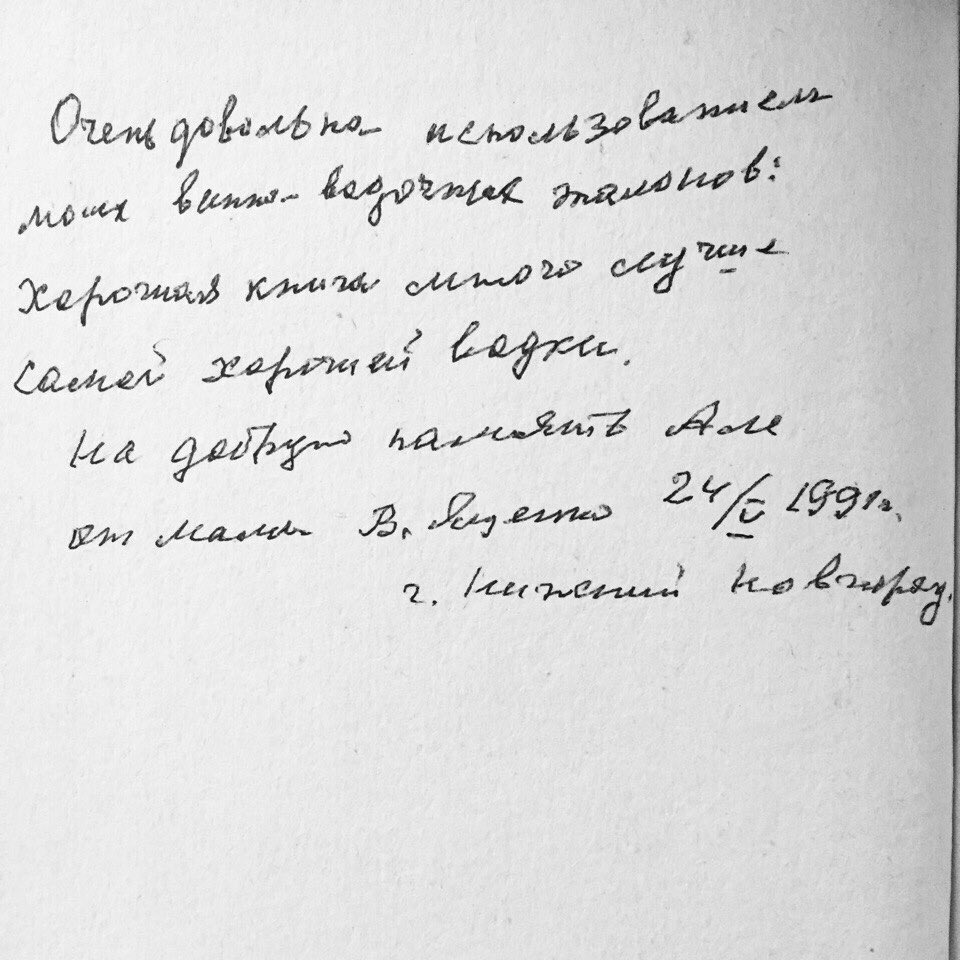 Очень довольна использованием
моих винно-водочных талонов:
Хорошая книга много лучше
самой хорошей водки.
На добрую память Але
от мамы В. Яценко 24/V 1991г.
г. Нижний Новгород.